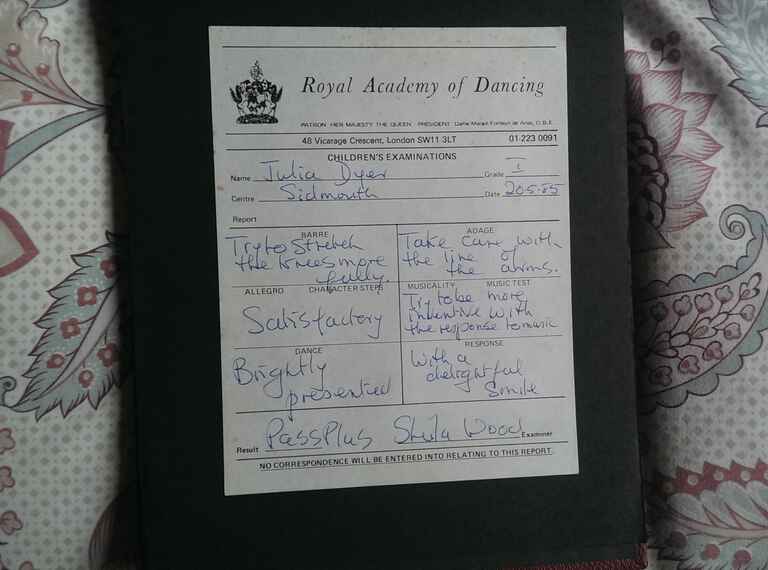 Royal Academy of Dancing
PATRON HER MAJESTY THE QUEEN PRESIDENT Dame Margot Fonteyn de Arias, D.B.E.
48 Vicarage Crescent, London SW11 3LT 01-223 0091
CHILDREN'S EXAMINATIONS
Name Julia Dyer Grade I
Centre Sidmouth Date 20.5.85
Report
BARRE
Try to stretch
the knees more
fully.
ADAGE
Take care with
the line of
the arms.
ALLEGRO CHARACTER STEPS
Satisfactory
MUSICALITY MUSIC TEST
Try to be more
inventive with
the response to music
DANCE
Brightly
presented
RESPONSE
With a
delightful
smile
Result Pass Plus Sheila Wood Examiner
NO CORRESPONDENCE WILL BE ENTERED INTO RELATING TO THIS REPORT.